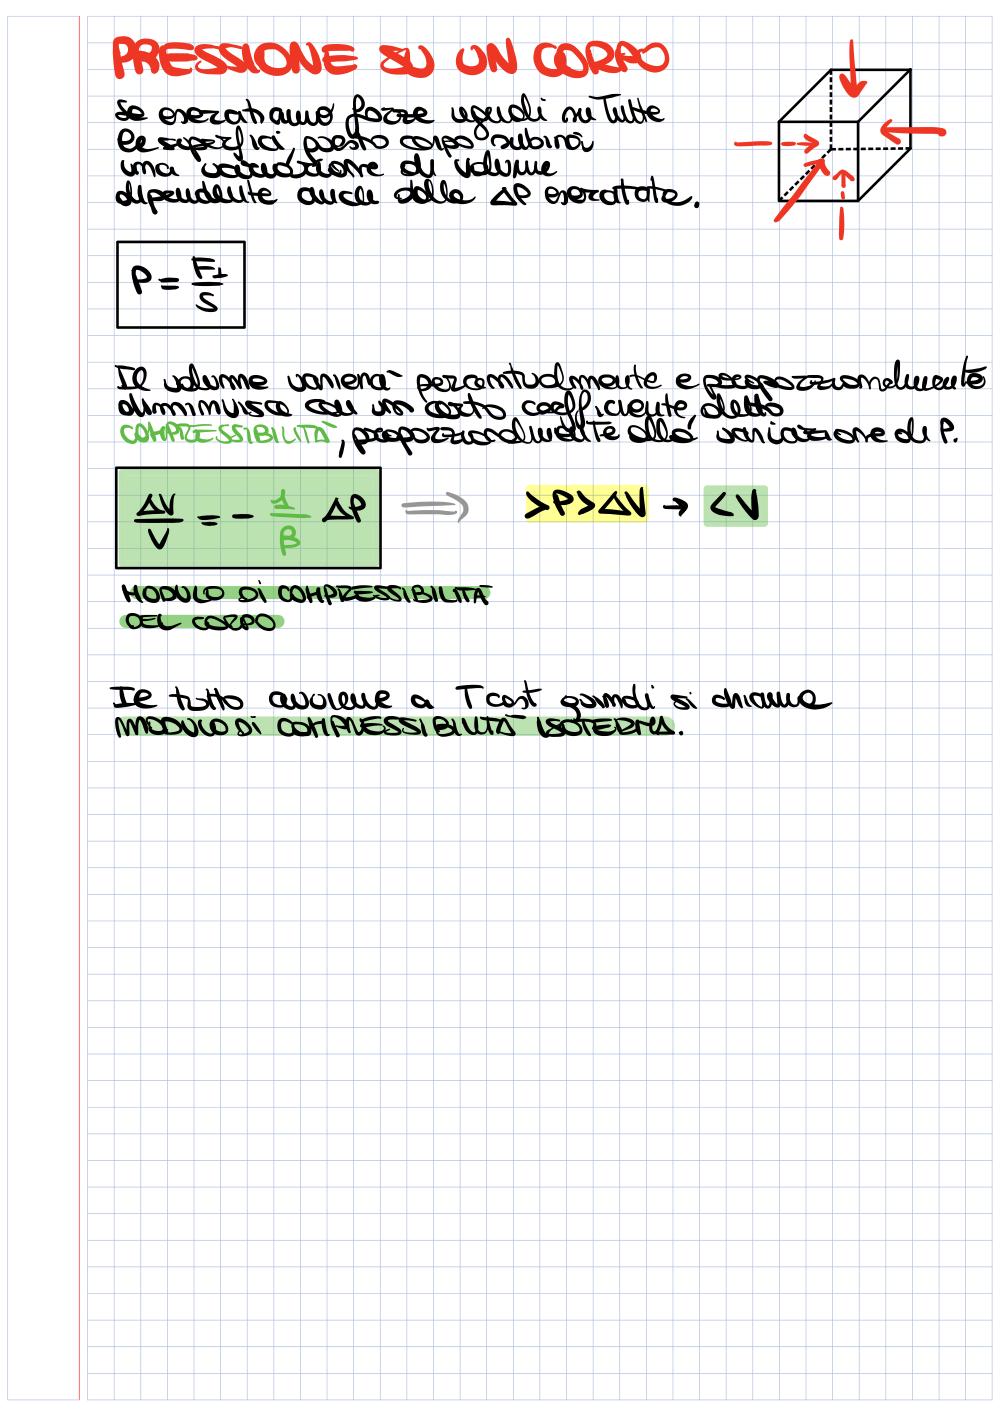 PRESSIONE SU UN CORPO
se esercitiamo forze uguali su tutte
le superfici, questo corpo subirà
una variazione di volume
dipendente anche dalla ΔP esercitata.
P = F⊥/S
Il volume varierà percentualmente e proporzionalmente
diminuisce con un certo coefficiente, detto
COMPRESSIBILITÀ, proporzionalmente alla variazione di P.
ΔV/V = - 1/β ΔP ⟹ >P>ΔV → <V
MODULO DI COMPRESSIBILITÀ
DEL CORPO
Il tutto avviene a T cost quindi si chiama
MODULO DI COMPRESSIBILITÀ ISOTERMA.